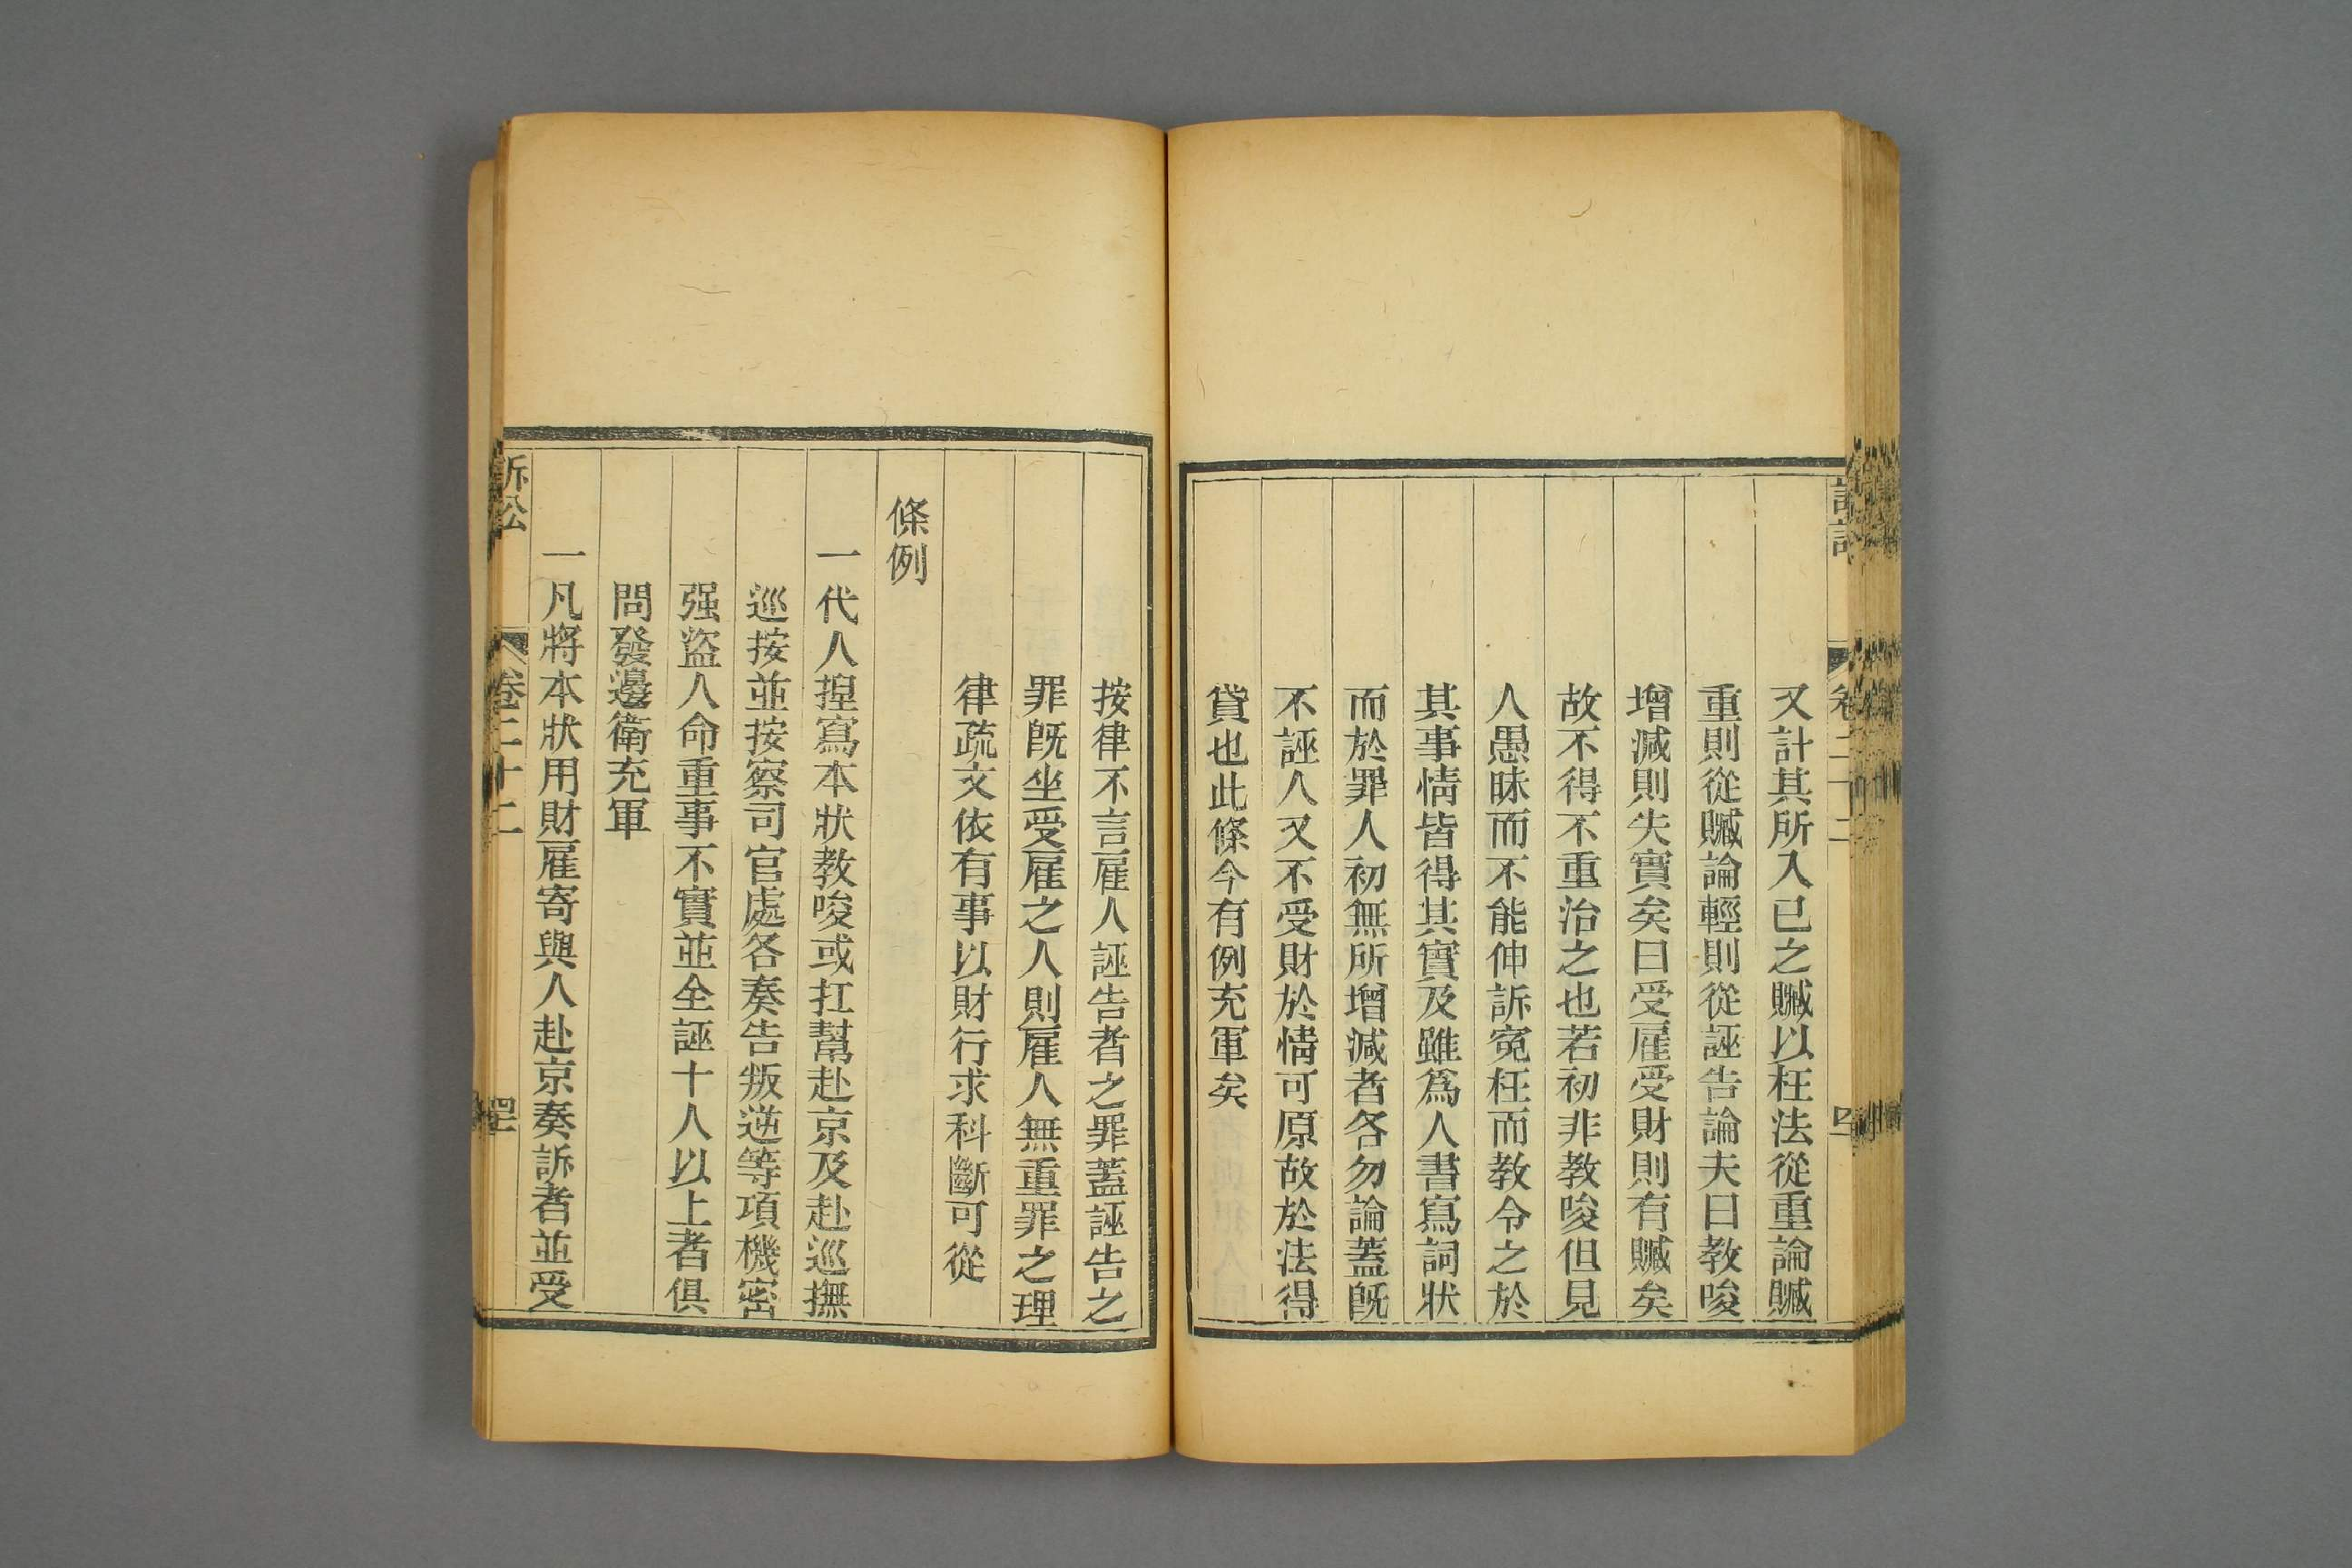 又計其所入已之贓以枉法從重論贓
重則從贓論輕則從誣告論夫曰教唆
增減則失實矣曰受雇受財則有贓矣
故不得不重治之也若初非教唆但見
人愚昧而不能伸訴寃枉而教令之於
其事情皆得其實及雖爲人書寫詞狀
而於罪人初無所增減者各勿論蓋旣
不誣人又不受財於情可原故於法得
貸也此條今有例充軍矣
按律不言雇人誣告者之罪蓋誣告之
罪旣坐受雇之人則雇人無重罪之理
律疏文依有事以財行求科斷可從
條例
一代人捏寫本狀教唆或扛幫赴京及赴巡撫
巡按並按察司官處各奏告叛逆等項機密
强盜人命重事不實並全誣十人以上者俱
問發邊衛充軍
一凡將本狀用財雇寄與人赴京奏訴者並受
訴訟
卷二十二